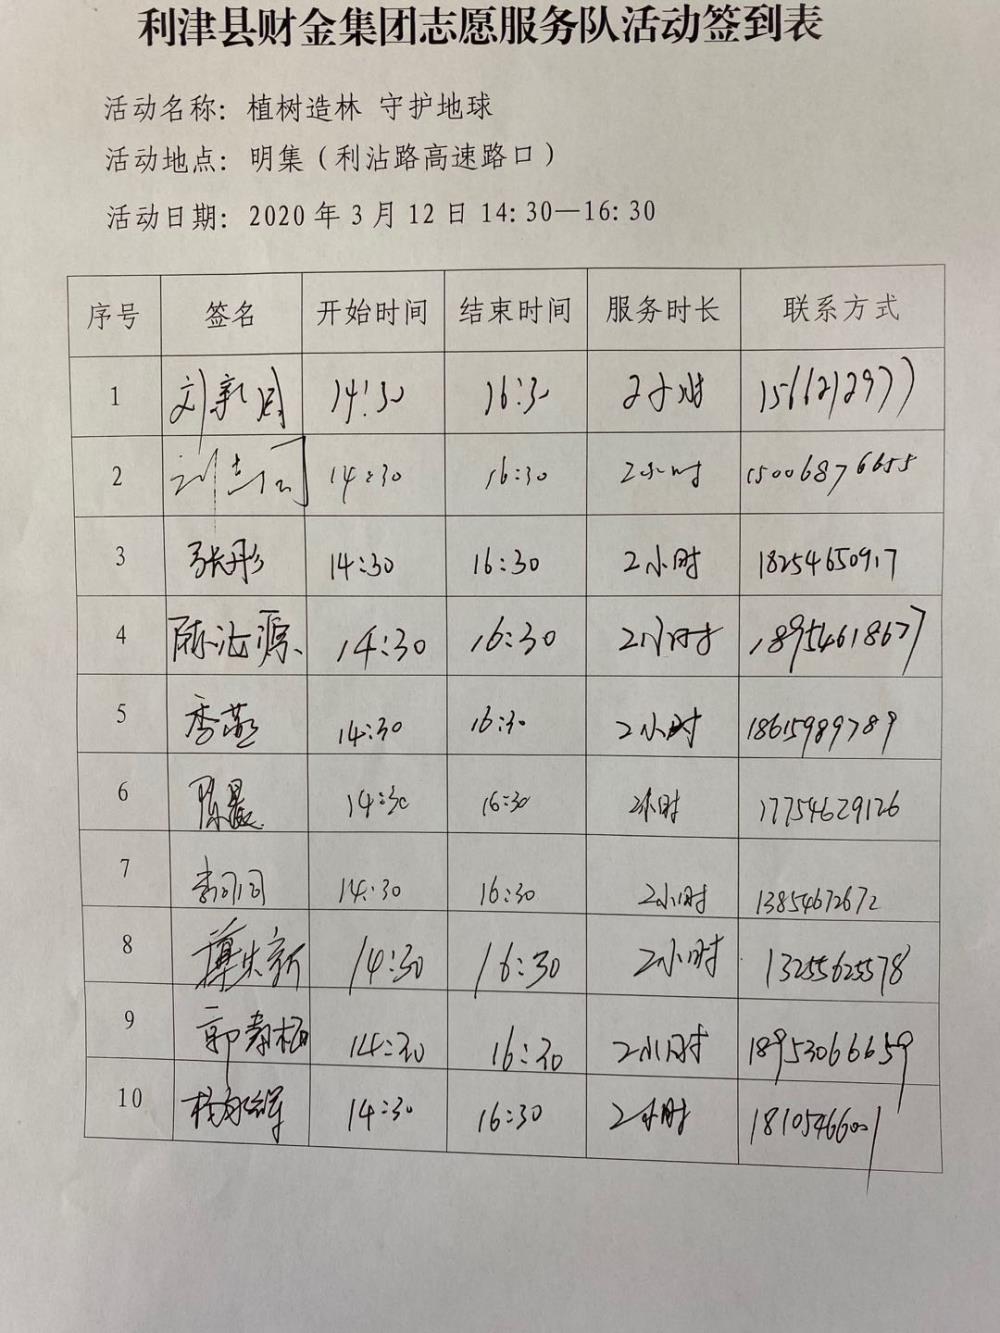 利津县财金集团志愿服务队活动签到表
活动名称：植树造林 守护地球
活动地点：明集（利沾路高速路口）
活动日期：2020年3月12日14:30—16:30
序号 签名 开始时间 结束时间 服务时长 联系方式
1 刘新 14:30 16:30 2小时 15662129777
2 刘志 14:30 16:30 2小时 15006876655
3 张彤 14:30 16:30 2小时 18254650917
4 陈沾源 14:30 16:30 2小时 18954618677
5 季燕 14:30 16:30 2小时 18615989789
6 陈晨 14:30 16:30 2小时 17754629126
7 14:30 16:30 2小时 13854672672
8 薄其新 14:30 16:30 2小时 13255625578
9 郭寿梅 14:30 16:30 2小时 18953066659
10 14:30 16:30 2小时 18105466001